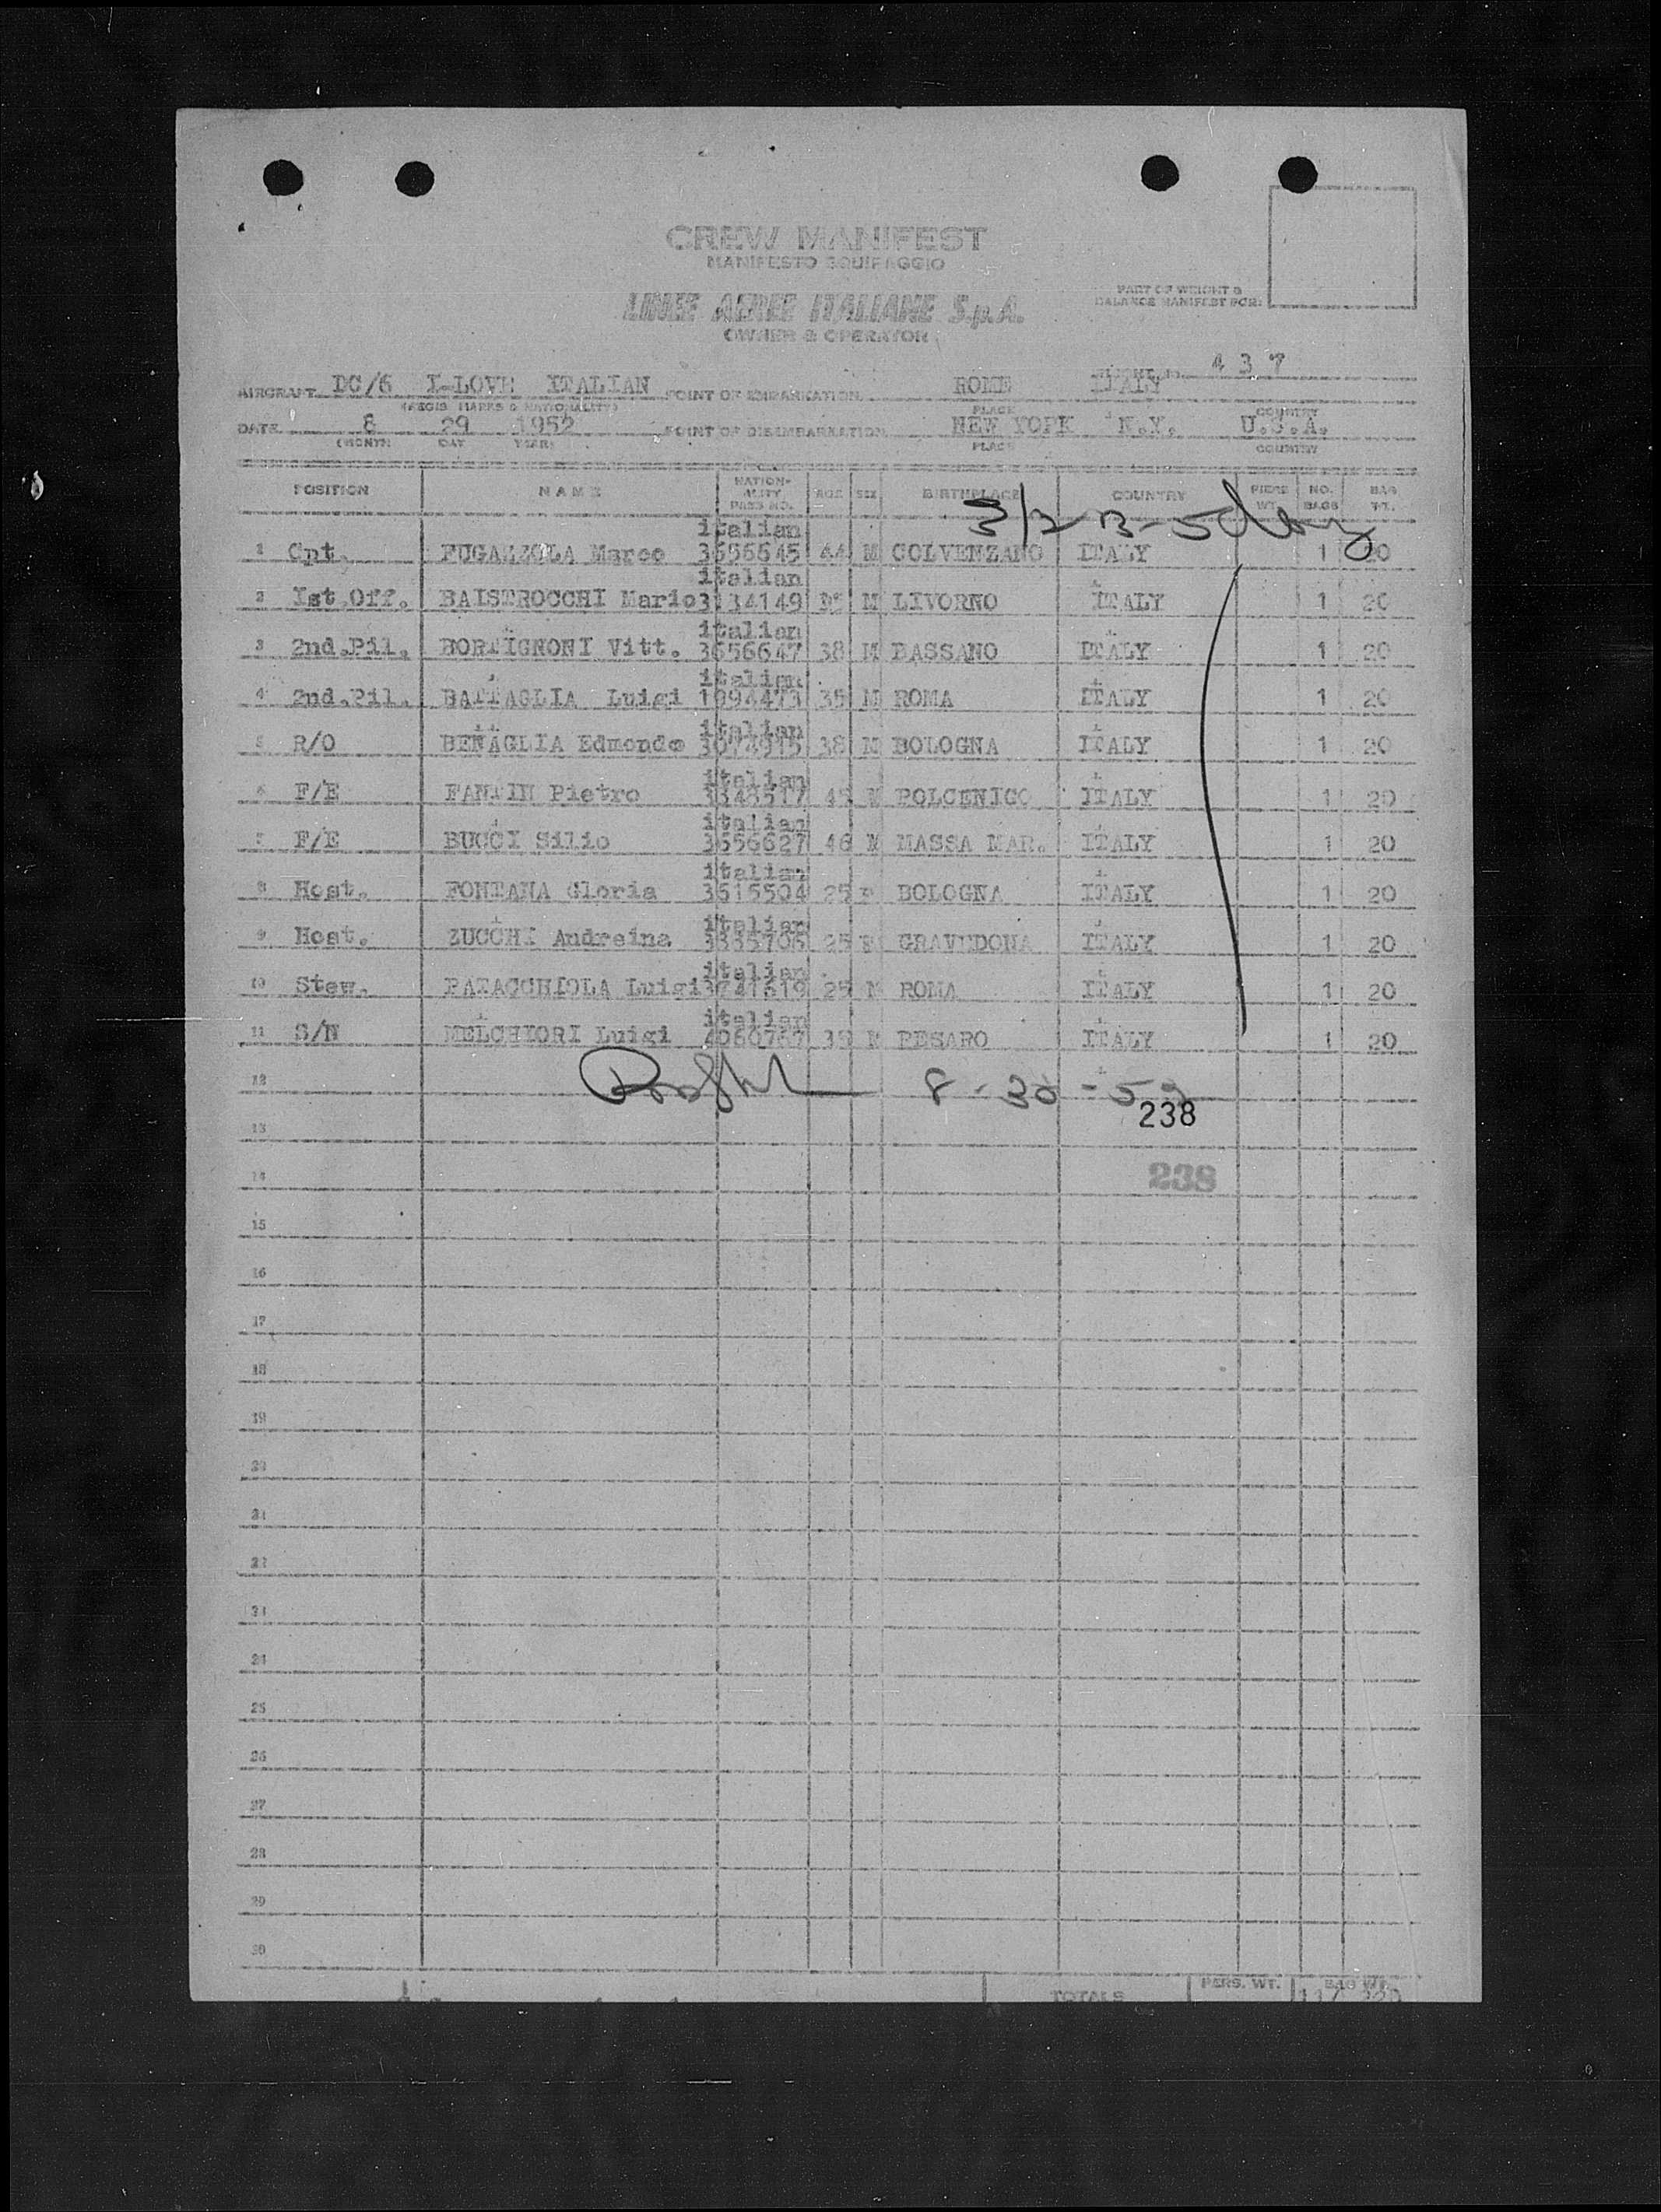 CREW MANIFEST
MANIFESTO EQUIPAGGIO
PART OF WEIGHT &
BALANCE MANIFEST FOR:
LINEE AEREE ITALIANE S.p.A.
OWNER & OPERATOR
437
AIRCRAFT DC/6 I-LOVE ITALIAN POINT OF EMBARKATION ROME ITALY
(REGIS MARKS & NATIONALITY) PLACE COUNTRY
DATE 8 29 1952 POINT OF DISEMBARKATION NEW YORK N.Y. U.S.A.
(MONTH DAY YEAR) PLACE COUNTRY
POSITION NAME NATION-ALITY PASS NO. AGE SEX BIRTHPLACE COUNTRY PIECE WT. NO. BAGS BAG WT.
italian
1 Cpt. FUGAZZOLA Marco 3656645 44 M COLVENZANO ITALY 1 20
italian
2 Ist.Off. BAISTROCCHI Mario 3134149 M LIVORNO ITALY 1 20
italian
3 2nd.Pil. BORTIGNONI Vitt. 3656647 38 M BASSANO ITALY 1 20
italian
4 2nd.Pil. BATTAGLIA Luigi 1994473 35 M ROMA ITALY 1 20
italian
5 R/O BENAGLIA Edmondo 38 M BOLOGNA ITALY 1 20
italian
6 F/E FANTIN Pietro M POLCENIGO ITALY 1 20
italian
7 F/E BUCCI Silio 3656627 46 M MASSA MAR. ITALY 1 20
italian
8 Host. FONTANA Gloria 3615504 25 F BOLOGNA ITALY 1 20
italian
9 Host. ZUCCHI Andreina 25 F GRAVEDONA ITALY 1 20
italian
10 Stew. PATACCHIOLA Luigi 25 M ROMA ITALY 1 20
italian
11 S/N MELCHIORI Luigi 4060767 M PESARO ITALY 1 20
12 8-30-52
238
13
14 238
15
16
17
18
19
20
21
22
23
24
25
26
27
28
29
30
TOTALS PERS. WT. BAG WT.
11/ 220